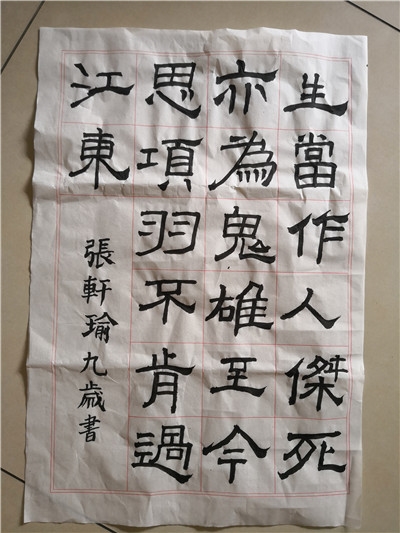 生當作人傑死
亦為鬼雄至今
思項羽不肯過
江東
張軒瑜九歲書